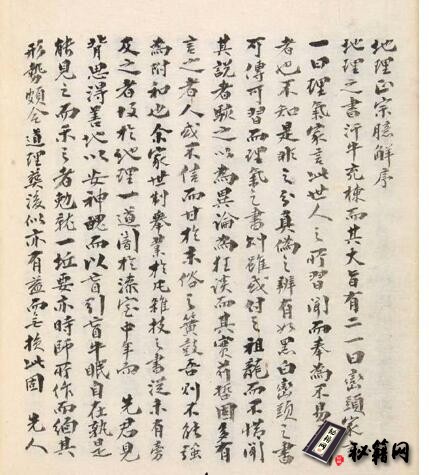 地理正宗臆解序
地理之書汗牛充棟而其大旨有二一曰巒頭家
一曰理氣家言此世人之所習聞而奉為不易
者也不知是非之分真偽之辨有如黑白巒頭之書
可傳可習而理氣之書則雖或付之祖龍而不惜聞
其說者駭之以為異論為狂談而其實前哲固多有
言之者人或不信而甘於末俗之簧鼓則不能強
為附和也余家世制舉業於凡雜技之書從未有旁
及之者故於地理一道闇於漆室中年而 先君見
背思得善地以安神魄而以盲引盲牛眠自在孰是
能見之而示之者勉就一坵要亦時師所作而細其
形勢頗合道理葬後似亦有益而無損此固 先人
秘籍网